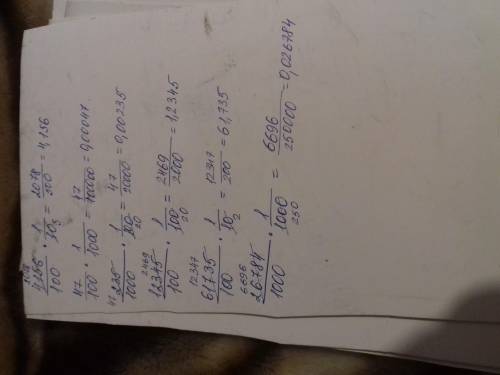 2078 4156/100 · 1/10 5 = 2078/500 = 4,156
47/100 · 1/1000 = 47/100000 = 0,00047
47 235/1000 · 1/100 20 = 47/20000 = 0,00235
2469 12345/100 · 1/100 20 = 2469/2000 = 1,2345
12347 61735/100 · 1/10 2 = 12347/200 = 61,735
6696 26784/1000 · 1/1000 250 = 6696/250000 = 0,026784